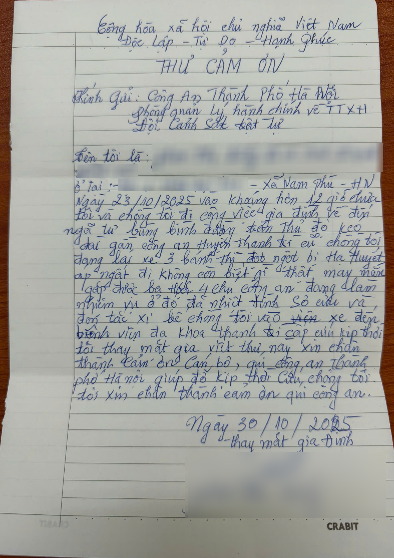 Cộng hòa xã hội chủ nghĩa Việt Nam
Độc lập - Tự Do - Hạnh phúc
THƯ CẢM ƠN
Kính Gửi: Công An Thành Phố Hà Nội
phòng quản lý hành chính về TTXH
Đội Cảnh Sát trật tự
Tên tôi là:
ở tại: - xã Nam Phù - HN
Ngày 23/10/2025 vào khoảng hơn 12 giờ chưa
tôi và chồng tôi đi công việc gia đình về đến
ngã tư bùng binh đường
gần công an Huyện Thanh trì cũ chồng tôi
đang lái xe 3 bánh thì đột ngột bị Hạ Huyết
áp ngất đi không còn biết gì thật may mắn
gặp được 4 chú công an đang làm
nhiệm vụ ở đó đã nhiệt tình Sơ cứu và
đón tắc xi bế chồng tôi vào xe đến
bệnh viện đa khoa thanh trì cấp cứu kịp thời
tôi thay mặt gia viết thư này xin chân
thành cảm ơn Cán bộ, quí công an thành
phố Hà nội giúp đỡ kịp thời Cứu chồng tôi
tôi xin chân thành cảm ơn quí công an.
Ngày 30/10/2025
thay mặt gia Đình
CRABIT